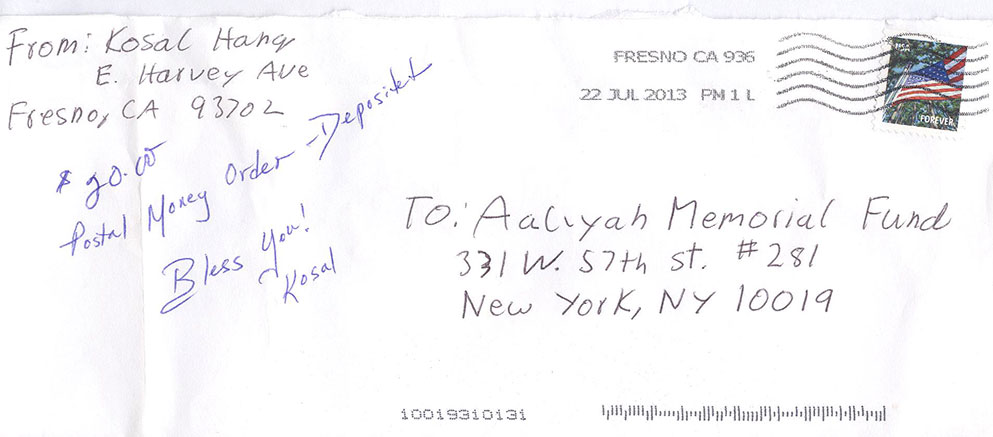 From: Kosal Hang
E. Harvey Ave
Fresno, CA 93702
$ 20.00
Postal Money Order - Deposited
Bless you!
Kosal
FRESNO CA 936
22 JUL 2013 PM 1 L
FOREVER
TO: Aaliyah Memorial Fund
331 W. 57th st. #281
New York, NY 10019
10019310131